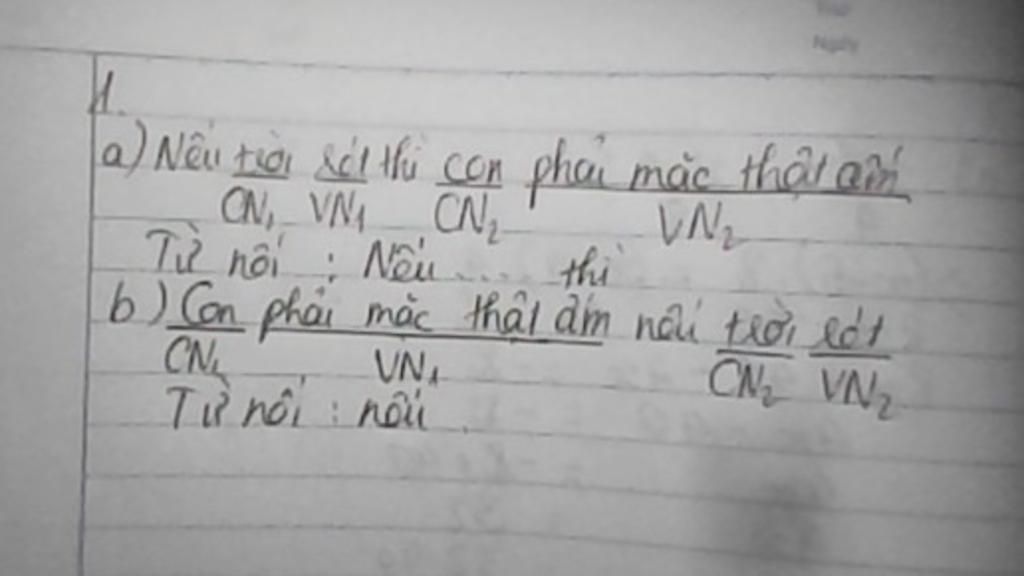 1.
a) Nếu trời rét thì con phải mặc thật ấm
CN₁ VN₁ CN₂ VN₂
Từ nối : Nếu .... thì
b) Con phải mặc thật ấm nếu trời rét
CN₁ VN₁ CN₂ VN₂
Từ nối : nếu